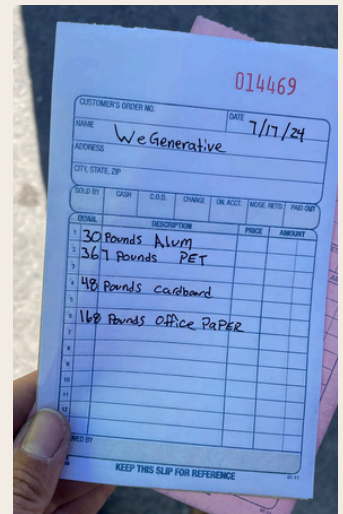 014469
CUSTOMER'S ORDER NO.
DATE 7/17/24
NAME WeGenerative
ADDRESS
CITY, STATE, ZIP
SOLD BY CASH C.O.D. CHARGE ON. ACCT. MDSE. RETD. PAID OUT
QUAN. DESCRIPTION PRICE AMOUNT
1 30 Pounds Alum
2 367 Pounds PET
3
4 48 Pounds cardboard
5
6 168 Pounds Office PaPER
7
8
9
10
11
12
KEEP THIS SLIP FOR REFERENCE